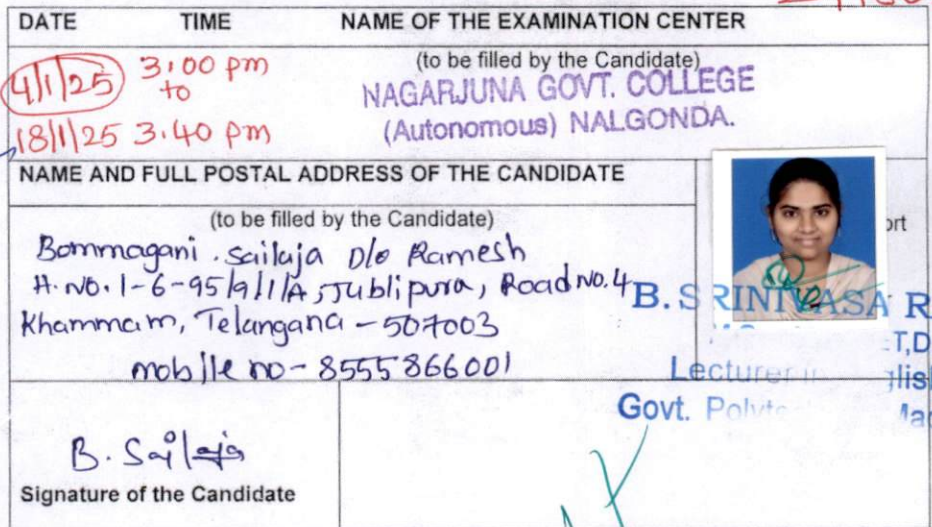 DATE TIME NAME OF THE EXAMINATION CENTER
(to be filled by the Candidate)
4/1/25 3:00 pm
to
18/1/25 3.40 pm
NAGARJUNA GOVT. COLLEGE
(Autonomous) NALGONDA.
NAME AND FULL POSTAL ADDRESS OF THE CANDIDATE
(to be filled by the Candidate)
ort
Bommagani . Sailaja D/o Ramesh
H. NO. 1-6-95/9/1/A, Jublipura, Road NO. 4
Khammam, Telangana - 507003
mobile no - 8555866001
B. SRINIVASA R
T,D
Lecturer in glis
Govt. Polyte Mac
B. Sailaja
Signature of the Candidate